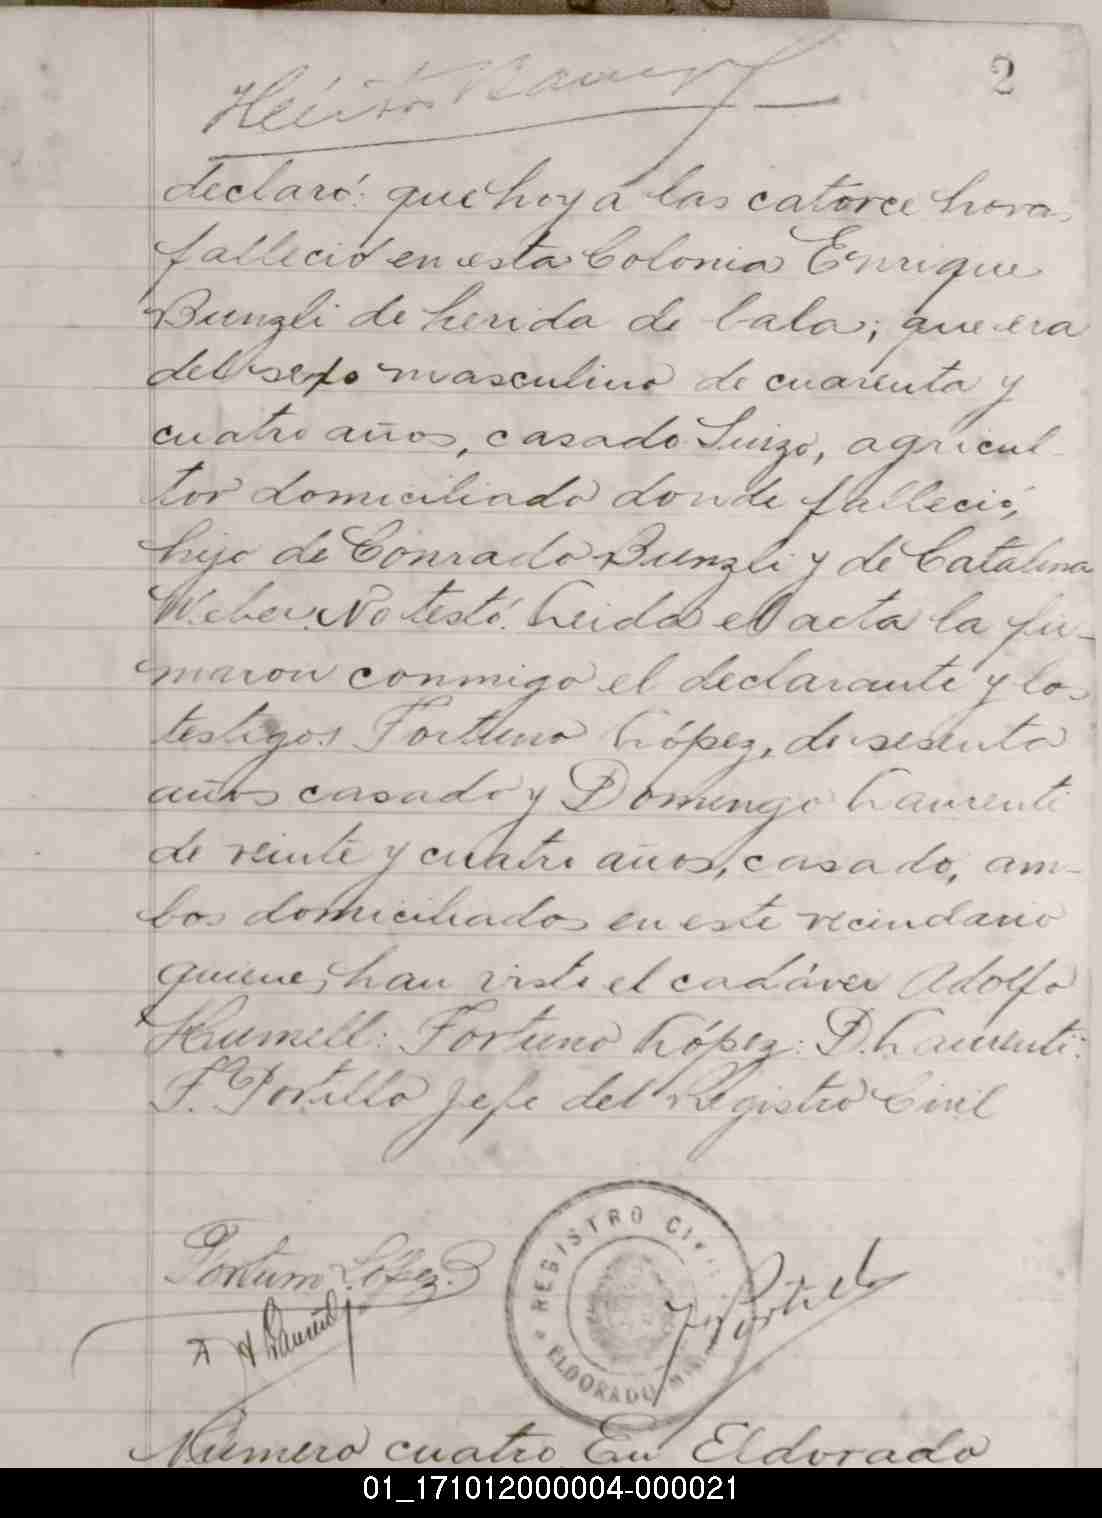 2
Héctor
declaró: que hoy a las catorce horas
falleció en esta Colonia Enrique
Bunzli de herida de bala; que era
del sexo masculino de cuarenta y
cuatro años, casado Suizo, agricul-
tor domiciliado donde falleció,
hijo de Conrado Bunzli y de Catalina
Weber. No testó. Leida el acta la fir-
maron conmigo el declarante y los
testigos Fortuno López, de sesenta
años casado y Domingo Laurenti
de veinte y cuatro años, casado, am-
bos domiciliados en este vecindario
quienes han visto el cadáver Adolfo
Humell: Fortuno López: D. Laurenti:
F. Portillo Jefe del Registro Civil
Fortuno López.
REGISTRO CIVIL
ELDORADO
Número cuatro En Eldorado
01_171012000004-000021